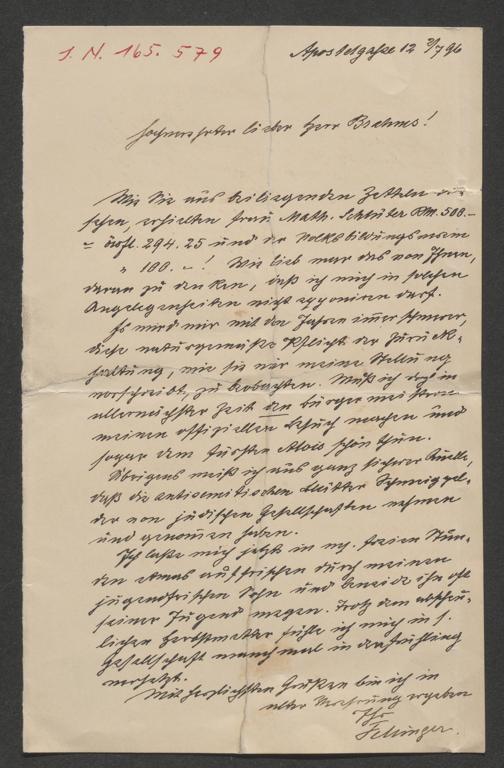 I. N. 165.579
Apostelgasse 12 3/7 96
Hochverehrter lieber Herr Brahms!
Wie Sie aus beiliegenden Zetteln er-
sehen, erhielten Frau Math. Schlüter RM. 500.-
= öst fl. 294.25 und der Volksbildungsverein
" 100.-! Wie lieb war das von Ihnen,
daran zu denken, daß ich mich in solchen
Angelegenheiten nicht exponiren darf.
Es wird mir mit den Jahren immer schwerer,
diese naturgemäße Pflicht der Zurück-
haltung, wie sie mir meine Stellung
vorschreibt, zu beobachten. Muß ich doch in
allernächster Zeit den Bürgermeistern
meinen offiziellen Besuch machen und
sogar dem Fürsten Alois schön thun.
Übrigens weiß ich aus ganz sicherer Quelle,
daß die antisemitischen Blätter Schweiggel-
der von jüdischen Gesellschaften nehmen
und genommen haben.
Ich lasse mich jetzt in m. freien Stun-
den etwas auffrischen durch meinen
jugendfrischen Sohn und beneide ihn oft
seiner Jugend wegen. Trotz dem abscheu-
lichen Herbstwetter fühle ich mich in s.
Gesellschaft manchmal in den Frühling
versetzt.
Mit herzlichsten Grüßen bin ich in
alter Verehrung ergeben
Ihr
Fellinger.